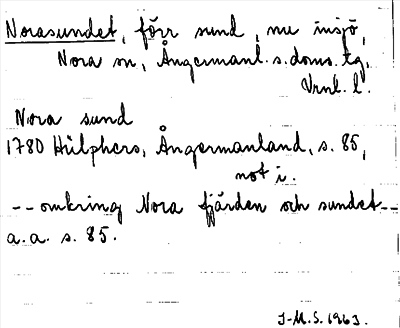 Norasundet, förr sund, nu insjö,
Nora sn, Ångermanl. s. doms. tg,
Vrnl. l.
Nora sund
1780 Hülphers, Ångermanland, s. 85,
not i.
-- omkring Nora fjärden och sundet --
a.a. s. 85.
J-M.S. 1963.